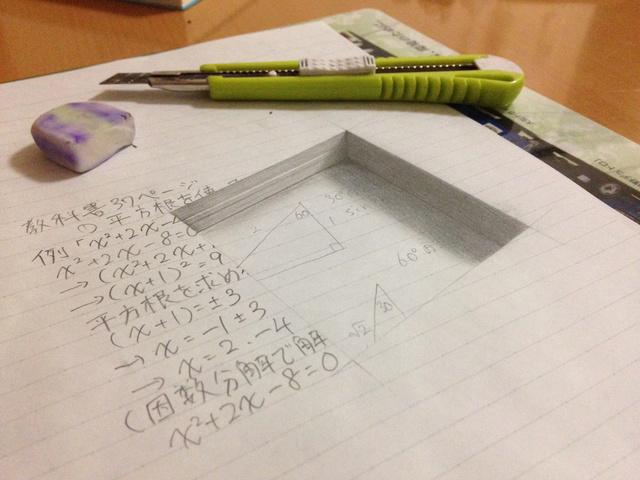 教科書37ページ
の平方根を使
例「x²+2x-
x²+2x-8=0
→(x²+2x+
→(x+1)²=9
平方根を求め
(x+1)=±3
→x=-1±3
→x=2.-4
(因数分解で解
x²+2x-8=0
2
60
30°
1
60°
√2
30